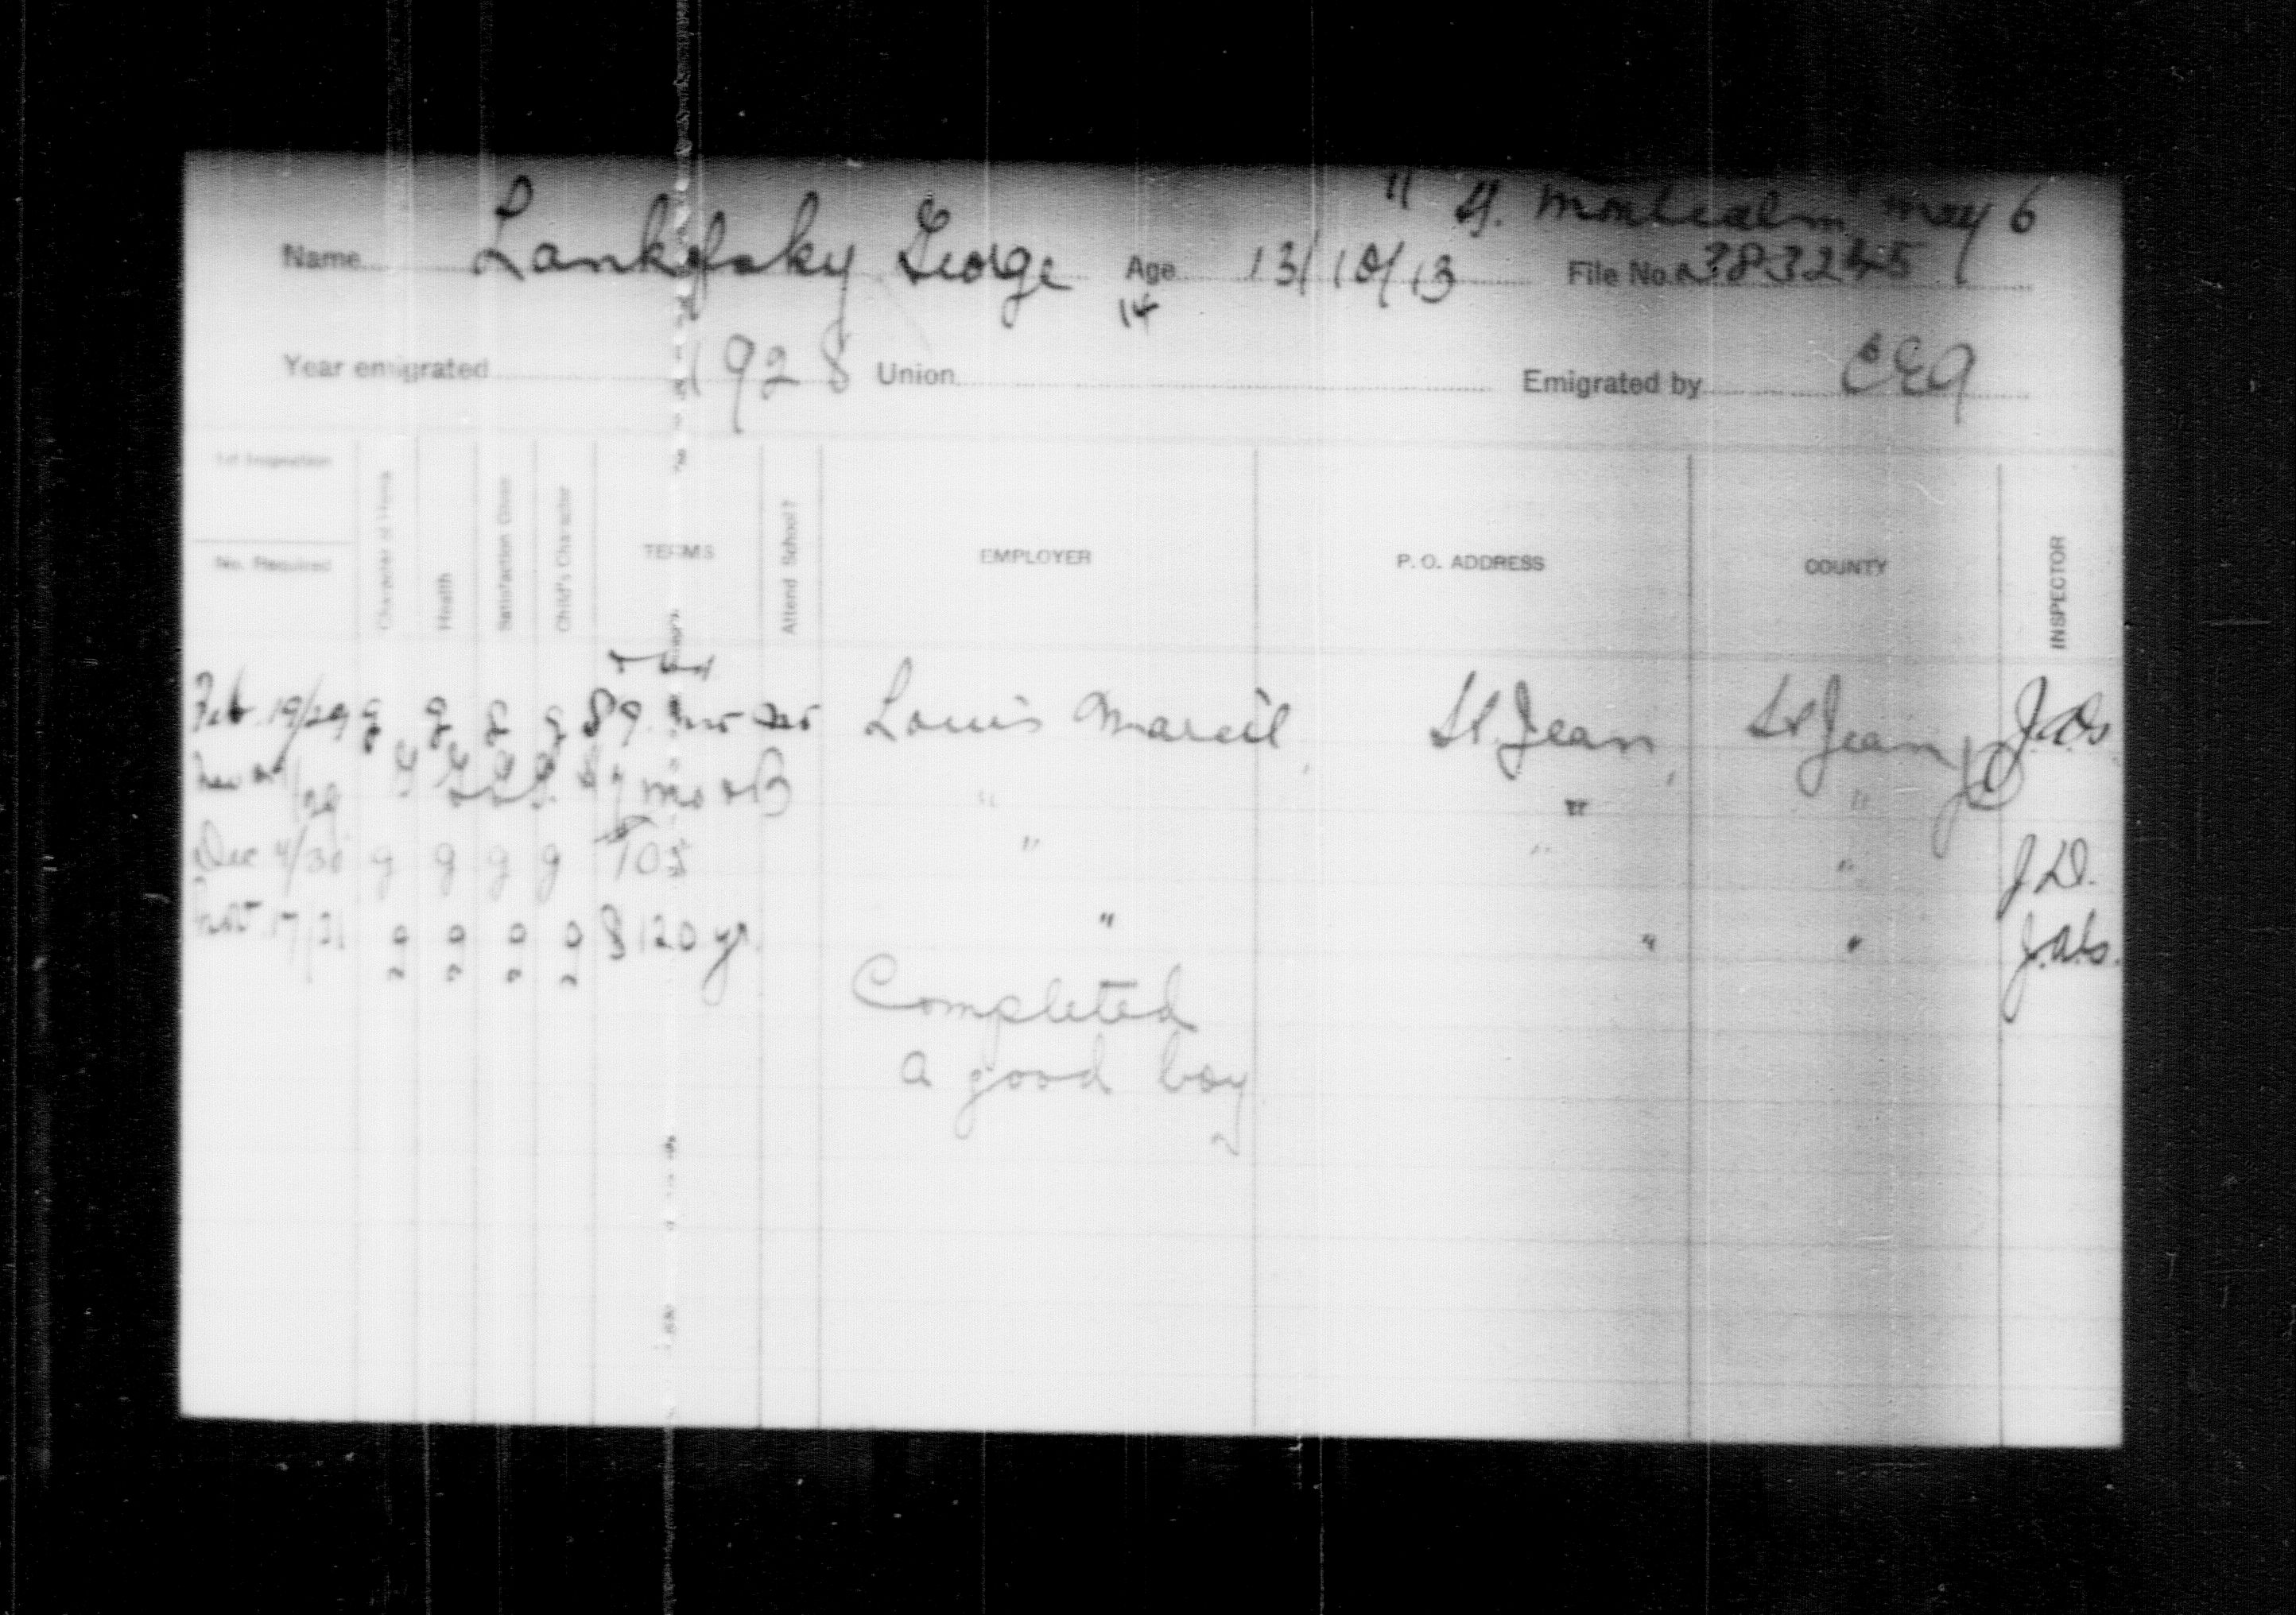 " y. Montcalm May 6
Name Lankofsky George Age 13/10/13 File No. 383245
14
Year emigrated 1928 Union Emigrated by CEA
1st Inspection
No. Required
Character of Home
Health
Satisfaction Given
Child's Character
TERMS
Attend School?
EMPLOYER
P. O. ADDRESS
COUNTY
INSPECTOR
Feb 19/29 g g g g $9 Louis Mareil, St. Jean, St Jean J.A.S.
/29 g g g g mo & B " " "
Dec 4/30 g g g g 105 " " " J.D.
Nov 17/31 g g g g $120 yr. " " " J.A.S.
Completed
a good boy